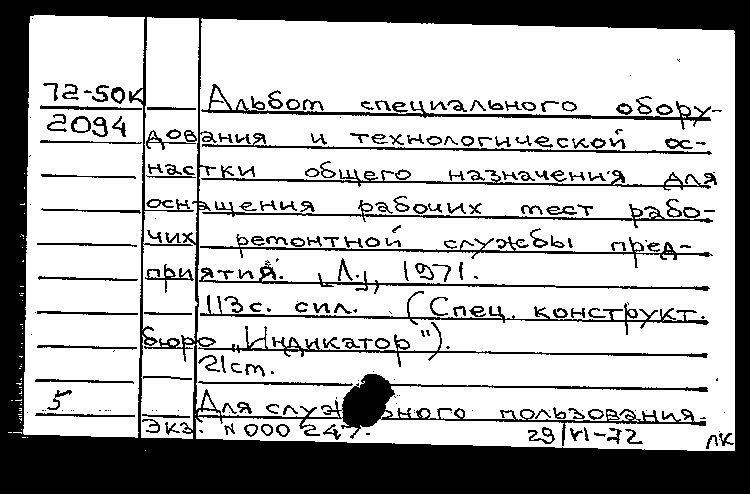 72-50К Альбом специального обору-
2094 дования и технологической ос-
настки общего назначения для
оснащения рабочих мест рабо-
чих ремонтной службы пред-
приятий. [Л.], 1971.
113с. с ил. (Спец. конструкт.
бюро „Индикатор").
21 cm.
5 Для служебного пользования.
Экз. N 000247.
29/VI-72 ЛК